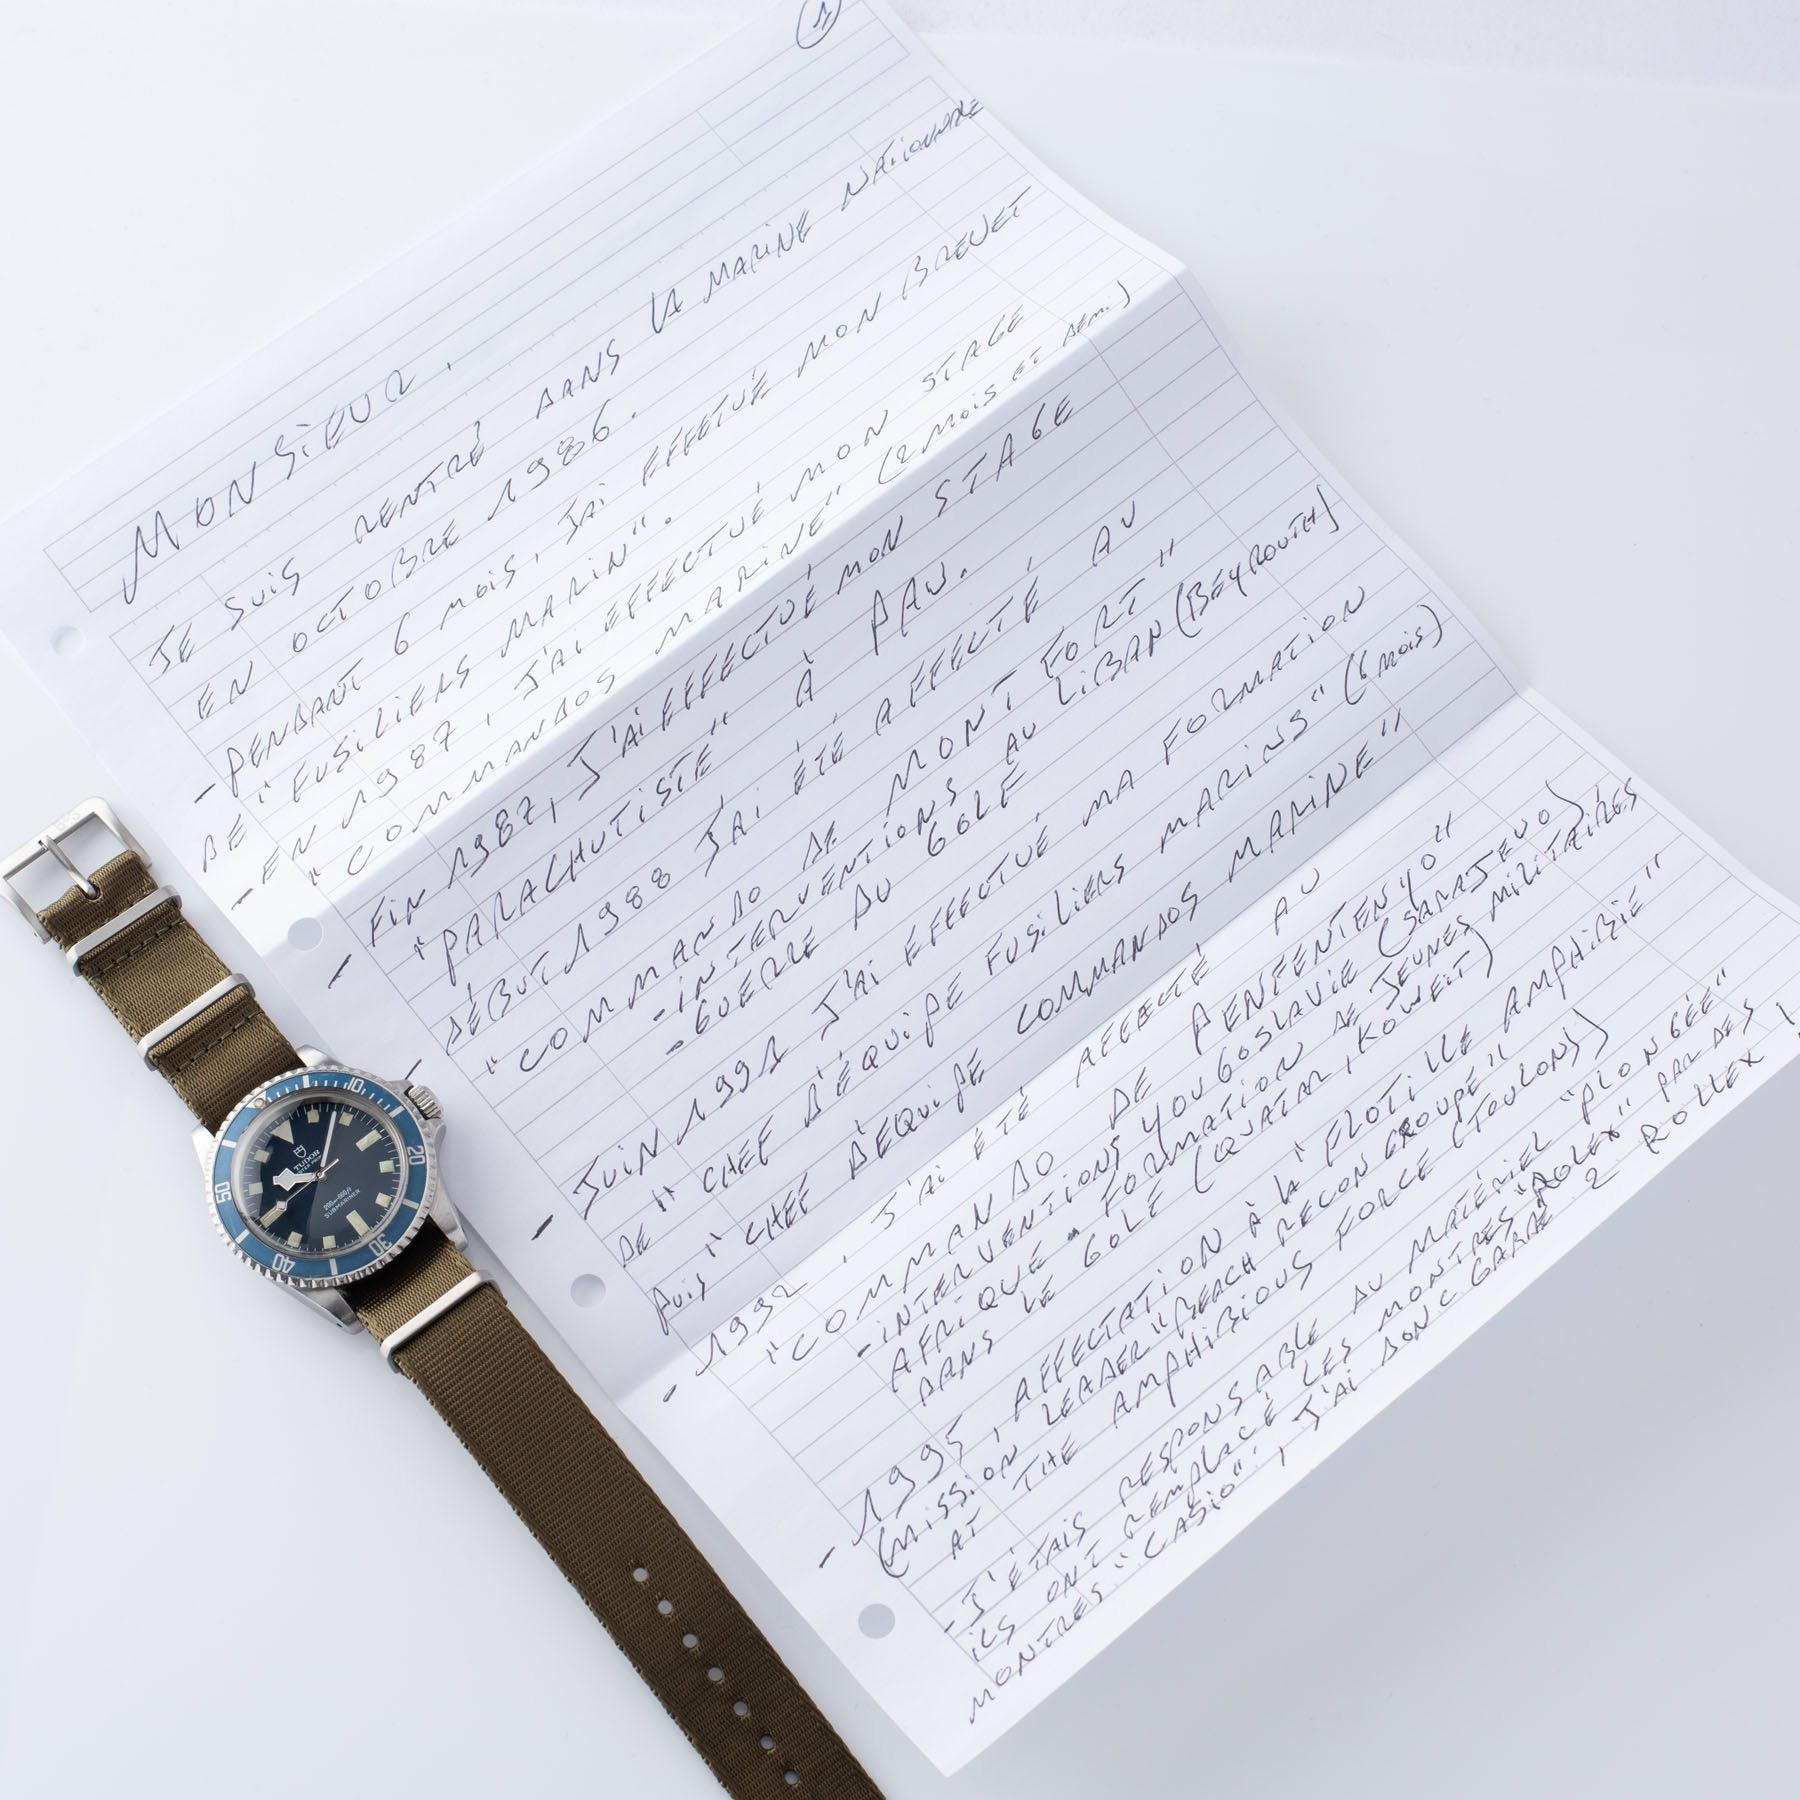 1
MONSIEUR,
JE SUIS RENTRÉ DANS LA MARINE NATIONALE
EN OCTOBRE 1986.
- PENDANT 6 MOIS, J'AI EFFETUÉ MON BREVET
DE "FUSILIERS MARIN".
- EN 1987, J'AI EFFECTUÉ MON STAGE
"COMMANDOS MARINE" (2 MOIS ET DEMI)
- FIN 1987, J'AI EFFECTUÉ MON STAGE
"PARACHUTISTE" À PAU.
- DÉBUT 1988 J'AI ÉTÉ AFFECTÉ AU
"COMMANDO DE MONT FORT"
- INTERVENTIONS AU LIBAN (BEYROUTH)
- GUERRE DU GOLF
- JUIN 1991 J'AI EFFECTUÉ MA FORMATION
DE "CHEF D'ÉQUIPE FUSILIERS MARINS" (6 MOIS)
PUIS "CHEF D'ÉQUIPE COMMANDOS MARINE"
- 1992, J'AI ÉTÉ AFFECTÉ AU
"COMMANDO DE PENFENTENYO"
- INTERVENTIONS YOUGOSLAVIE (SARAJEVO),
AFRIQUE - FORMATION DE JEUNES MILITAIRES
DANS LE GOLF (QUATAR, KOWEIT)
- 1995, AFFECTATION À LA "FLOTILLE AMPHIBIE"
(MISSION LEADER "BEACH RECON GROUPE"
AT THE AMPHIBIOUS FORCE (TOULONS)
- J'ÉTAIS RESPONSABLE DU MATÉRIEL "PLONGÉE"
ILS ONT REMPLACÉ LES MONTRES "ROLEX" PAR DES
MONTRES "CASIO", J'AI DONC GARDÉ 2 ROLLEX
TUDOR
200m=660ft
SUBMARINER
10
20
30
40
50